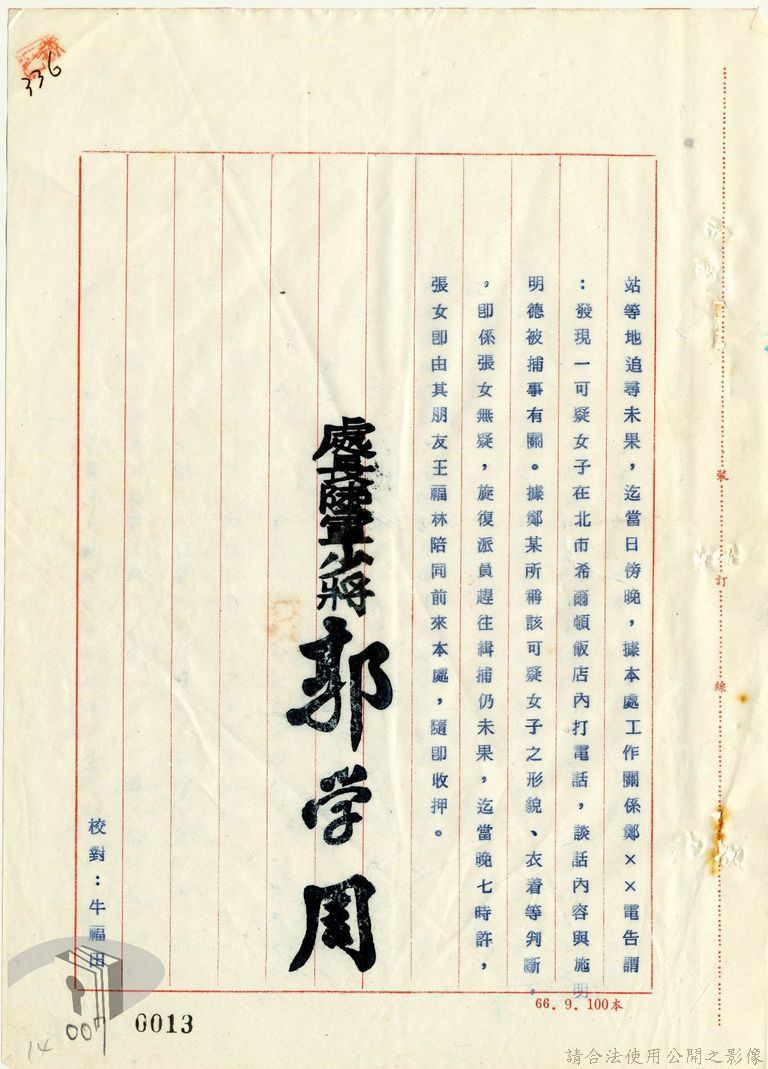 336
站等地追尋未果，迄當日傍晚，據本處工作關係鄭××電告謂
：發現一可疑女子在北市希爾頓飯店內打電話，談話內容與施明
明德被捕事有關。據鄭某所稱該可疑女子之形貌、衣着等判斷，
，卽係張女無疑，旋復派員趕往緝捕仍未果，迄當晚七時許，
張女卽由其朋友王福林陪同前來本處，隨卽收押。
處長陸軍少將郭学周
校對：牛福田
裝訂線
66.9.100本
0013
007
14
請合法使用公開之影像